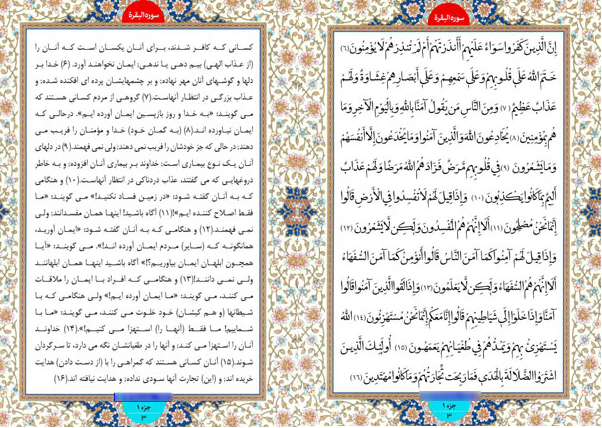 سورة البقرة
إِنَّ الَّذِينَ كَفَرُوا سَوَاءٌ عَلَيْهِمْ أَأَنذَرْتَهُمْ أَمْ لَمْ تُنذِرْهُمْ لَا يُؤْمِنُونَ (۶)
خَتَمَ اللَّهُ عَلَى قُلُوبِهِمْ وَعَلَى سَمْعِهِمْ وَعَلَى أَبْصَارِهِمْ غِشَاوَةٌ وَلَهُمْ
عَذَابٌ عَظِيمٌ (۷) وَمِنَ النَّاسِ مَن يَقُولُ آمَنَّا بِاللَّهِ وَبِالْيَوْمِ الْآخِرِ وَمَا
هُم بِمُؤْمِنِينَ (۸) يُخَادِعُونَ اللَّهَ وَالَّذِينَ آمَنُوا وَمَا يَخْدَعُونَ إِلَّا أَنفُسَهُمْ
وَمَا يَشْعُرُونَ (۹) فِي قُلُوبِهِم مَّرَضٌ فَزَادَهُمُ اللَّهُ مَرَضًا وَلَهُمْ عَذَابٌ
أَلِيمٌ بِمَا كَانُوا يَكْذِبُونَ (۱۰) وَإِذَا قِيلَ لَهُمْ لَا تُفْسِدُوا فِي الْأَرْضِ قَالُوا
إِنَّمَا نَحْنُ مُصْلِحُونَ (۱۱) أَلَا إِنَّهُمْ هُمُ الْمُفْسِدُونَ وَلَكِن لَّا يَشْعُرُونَ (۱۲)
وَإِذَا قِيلَ لَهُمْ آمِنُوا كَمَا آمَنَ النَّاسُ قَالُوا أَنُؤْمِنُ كَمَا آمَنَ السُّفَهَاءُ
أَلَا إِنَّهُمْ هُمُ السُّفَهَاءُ وَلَكِن لَّا يَعْلَمُونَ (۱۳) وَإِذَا لَقُوا الَّذِينَ آمَنُوا قَالُوا
آمَنَّا وَإِذَا خَلَوْا إِلَى شَيَاطِينِهِمْ قَالُوا إِنَّا مَعَكُمْ إِنَّمَا نَحْنُ مُسْتَهْزِئُونَ (۱۴) اللَّهُ
يَسْتَهْزِئُ بِهِمْ وَيَمُدُّهُمْ فِي طُغْيَانِهِمْ يَعْمَهُونَ (۱۵) أُولَئِكَ الَّذِينَ
اشْتَرَوُا الضَّلَالَةَ بِالْهُدَى فَمَا رَبِحَت تِّجَارَتُهُمْ وَمَا كَانُوا مُهْتَدِينَ (۱۶)
جزء ۱
۳
سورة البقرة
کسانی که کافر شدند، برای آنان یکسان است که آنان را
(از عذاب الهی) بیم دهی یا ندهی؛ ایمان نخواهند آورد. (۶) خدا بر
دلها و گوشهای آنان مهر نهاده؛ و بر چشمهایشان پرده ای افکنده شده؛ و
عذاب بزرگی در انتظار آنهاست.(۷) گروهی از مردم کسانی هستند که
می گویند: «به خدا و روز بازپسین ایمان آورده ایم.» درحالی که
ایمان نیاورده اند.(۸) (به گمان خود) خدا و مؤمنان را فریب می
دهند؛ در حالی که جز خودشان را فریب نمی دهند؛ ولی نمی فهمند.(۹) در دلهای
آنان یک نوع بیماری است؛ خداوند بر بیماری آنان افزوده؛ و به خاطر
دروغهایی که می گفتند، عذاب دردناکی در انتظار آنهاست.(۱۰) و هنگامی
که به آنان گفته شود: «در زمین فساد نکنید!» می گویند: «ما
فقط اصلاح کننده ایم»!(۱۱) آگاه باشید! اینها همان مفسدانند؛ ولی
نمی فهمند.(۱۲) و هنگامی که به آنان گفته شود: «ایمان آورید،
همانگونه که (سایر) مردم ایمان آورده اند!»، می گویند: «آیا
همچون ابلهان ایمان بیاوریم؟!» آگاه باشید اینها همان ابلهانند
ولی نمی دانند!(۱۳) و هنگامی که افراد با ایمان را ملاقات
می کنند، می گویند: «ما ایمان آورده ایم!» ولی هنگامی که با
شیطانها (و هم کیشان) خود خلوت می کنند، می گویند: «ما با
شماییم! ما فقط (آنها را) استهزا می کنیم!».(۱۴) خداوند
آنان را استهزا می کند؛ و آنها را در طغیانشان نگه می دارد، تا سرگردان
شوند.(۱۵) آنان کسانی هستند که گمراهی را با (از دست دادن) هدایت
خریده اند؛ و (این) تجارت آنها سودی نداده؛ و هدایت نیافته اند.(۱۶)
جزء ۱
۳